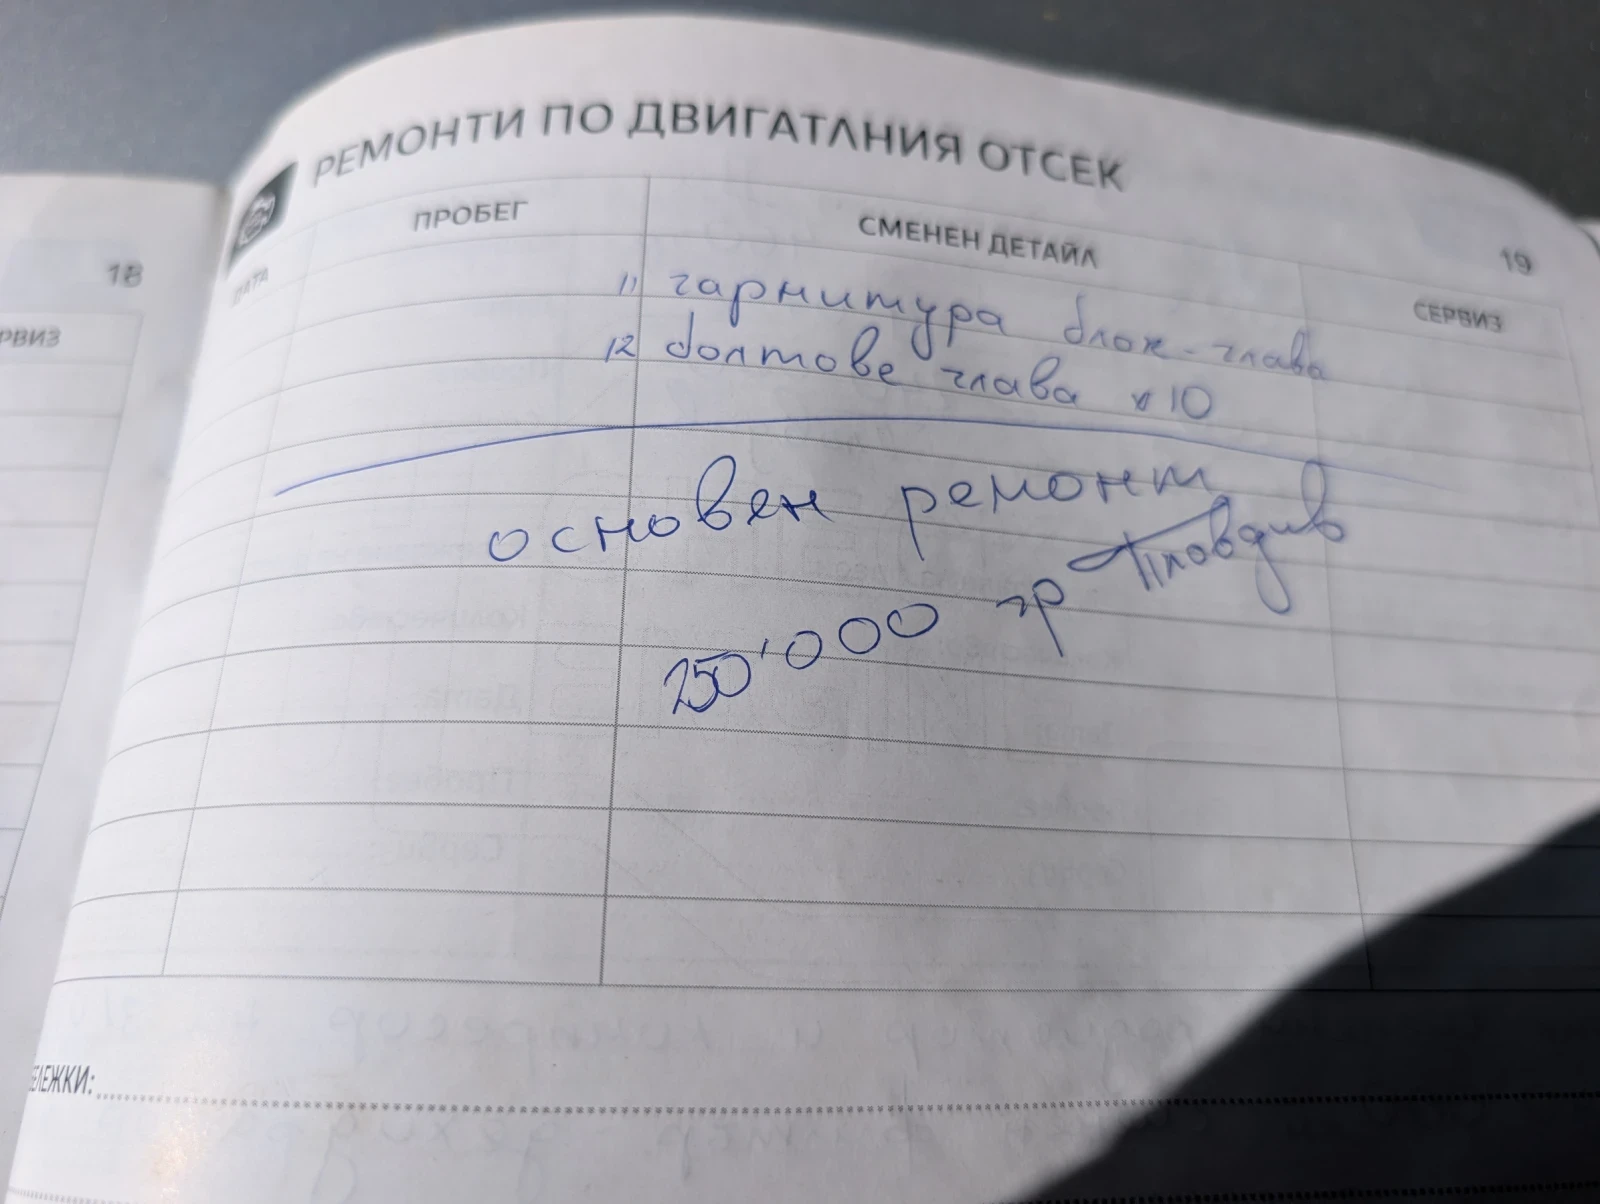 РЕМОНТИ ПО ДВИГАТЛНИЯ ОТСЕК
18
19
РВИЗ
ДАТА
ПРОБЕГ
СМЕНЕН ДЕТАЙЛ
СЕРВИЗ
11 гарнитура блок-глава
12 болтове глава x10
основен ремонт
250'000 гр Пловдив
ЕЛЕЖКИ: